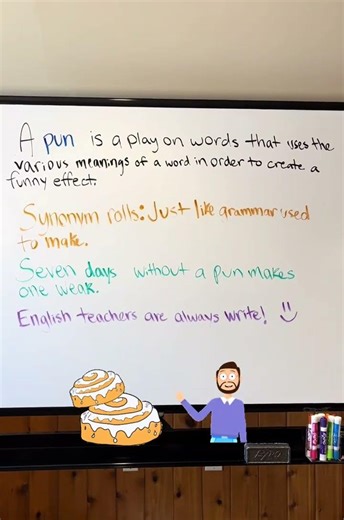 A pun is a play on words that uses the
various meanings of a word in order to create a
funny effect.
Synonym rolls: Just like grammar used
to make.
Seven days without a pun makes
one weak.
English teachers are always write!
EXPO